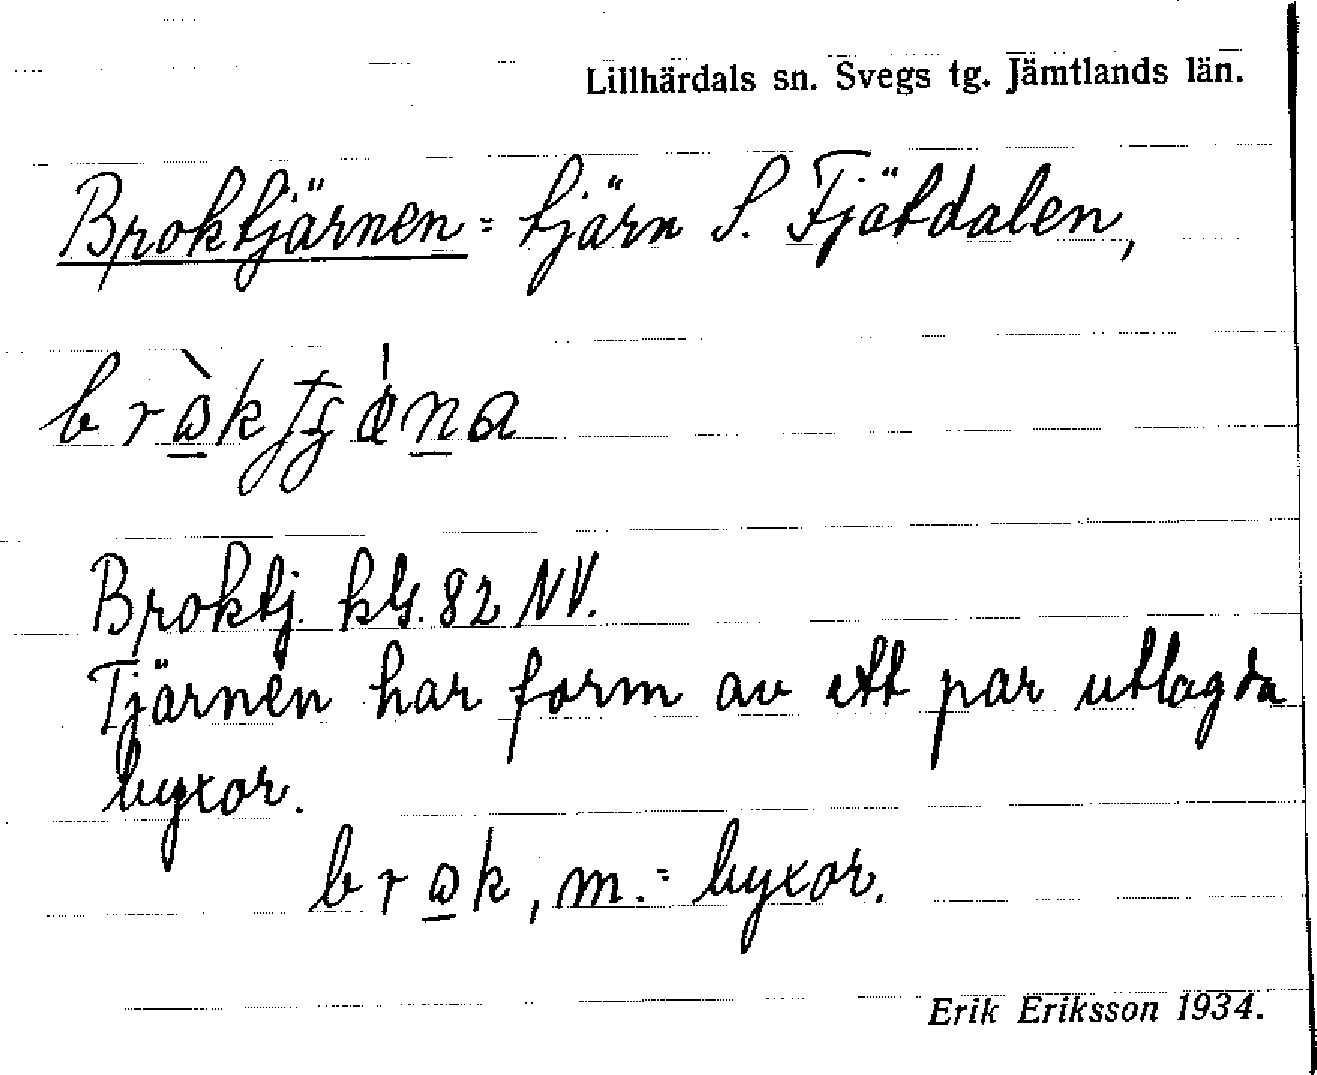 Lillhärdals sn. Svegs tg. Jämtlands län.
Broktjärnen = tjärn S. Fjätdalen,
Broktj. kbl. 82 NV.
Tjärnen har form av ett par utlagda
byxor.
brωk, m. = byxor.
Erik Eriksson 1934.